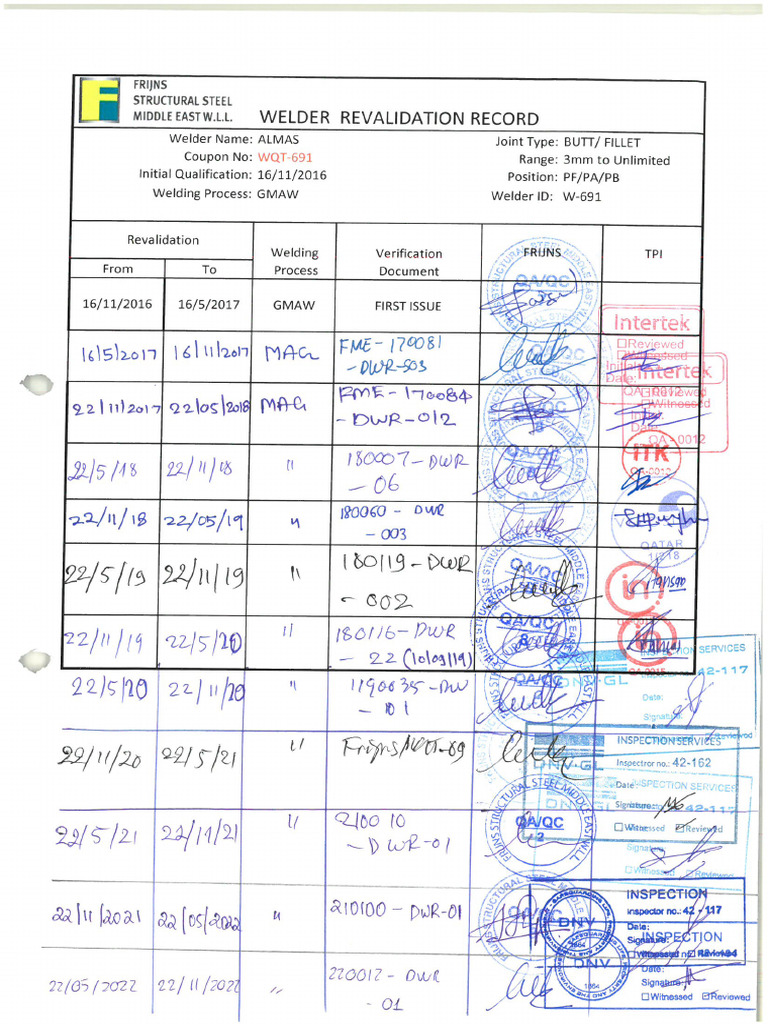 FRIJNS
STRUCTURAL STEEL
MIDDLE EAST W.L.L.
WELDER REVALIDATION RECORD
Welder Name: ALMAS
Joint Type: BUTT/ FILLET
Coupon No: WQT-691
Range: 3mm to Unlimited
Initial Qualification: 16/11/2016
Position: PF/PA/PB
Welding Process: GMAW
Welder ID: W-691
Revalidation
From To
Welding Process
Verification Document
FRIJNS
TPI
16/11/2016 16/5/2017 GMAW FIRST ISSUE
16/5/2017 16/11/2017 MAG FME-170081
-DWR-503
22/11/2017 22/05/2018 MAG FME-170084
-DWR-012
22/5/18 22/11/18 " 180007-DWR
-06
22/11/18 22/05/19 " 180060-DWR
-003
22/5/19 22/11/19 " 180119-DWR
-002
22/11/19 22/5/20 " 180116-DWR
-22 (10/09/19)
22/5/20 22/11/20 " 1190035-DW
-101
22/11/20 22/5/21 "
22/5/21 22/11/21 " 210010
-DWR-01
22/11/2021 22/05/2022 " 210100-DWR-01
22/05/2022 22/11/2022 " 220012-DWR
-01
FRIJNS STRUCTURAL STEEL MIDDLE EAST W.L.L
QA/QC
QA/QC
8
QA/QC
QA/QC
QA/QC
8
QA/QC
QA/QC
2
Intertek
Reviewed
Witnessed
Date:
QA-0012
Intertek
Reviewed
Witnessed
Date:
QA-0012
ITK
QA-0012
QATAR
in
in
INSPECTION SERVICES
42-117
Date:
Signature:
Reviewed
DNV·GL
INSPECTION SERVICES
Inspector no.: 42-162
Date:
Signature:
Witnessed Reviewed
DNV·GL
INSPECTION SERVICES
42-117
Signature
Witnessed Reviewed
DNV
1864
INSPECTION
Inspector no.: 42-117
Date:
Signature:
DNV
1864
INSPECTION
Date:
Signature
Witnessed Reviewed